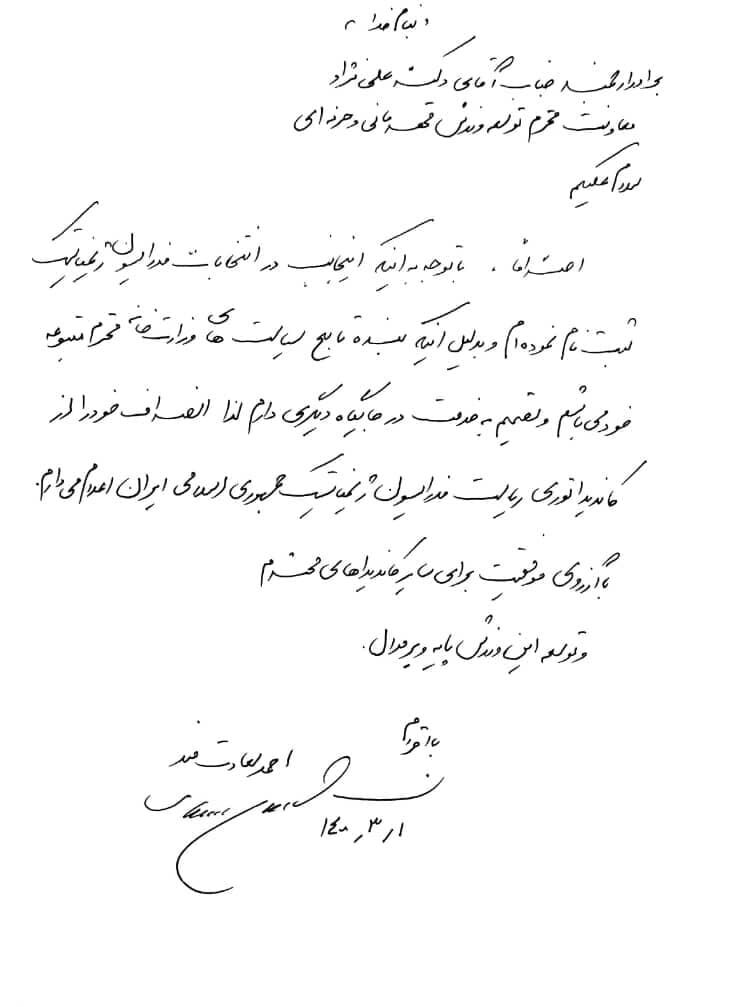 « بنام خدا »
برادر ارجمند جناب آقای دکتر علی نژاد
معاونت محترم توسعه ورزش قهرمانی و حرفه ای
سلام علیکم
احتراماً ، با توجه به اینکه اینجانب در انتخابات فدراسیون ژیمناستیک
ثبت نام نموده ام و بدلیل آنکه بنده تابع سیاست های وزارت خانه محترم متبوعه
خود می باشم و تصمیم به خدمت در جایگاه دیگری دارم لذا انصراف خود را از
کاندیداتوری ریاست فدراسیون ژیمناستیک جمهوری اسلامی ایران اعلام می دارم.
با آرزوی موفقیت برای سایر کاندیداهای محترم
و توسعه این ورزش پایه و پرمدال.
با احترام
احمد سعادت مند
۱۴۰۰٫۳٫۱